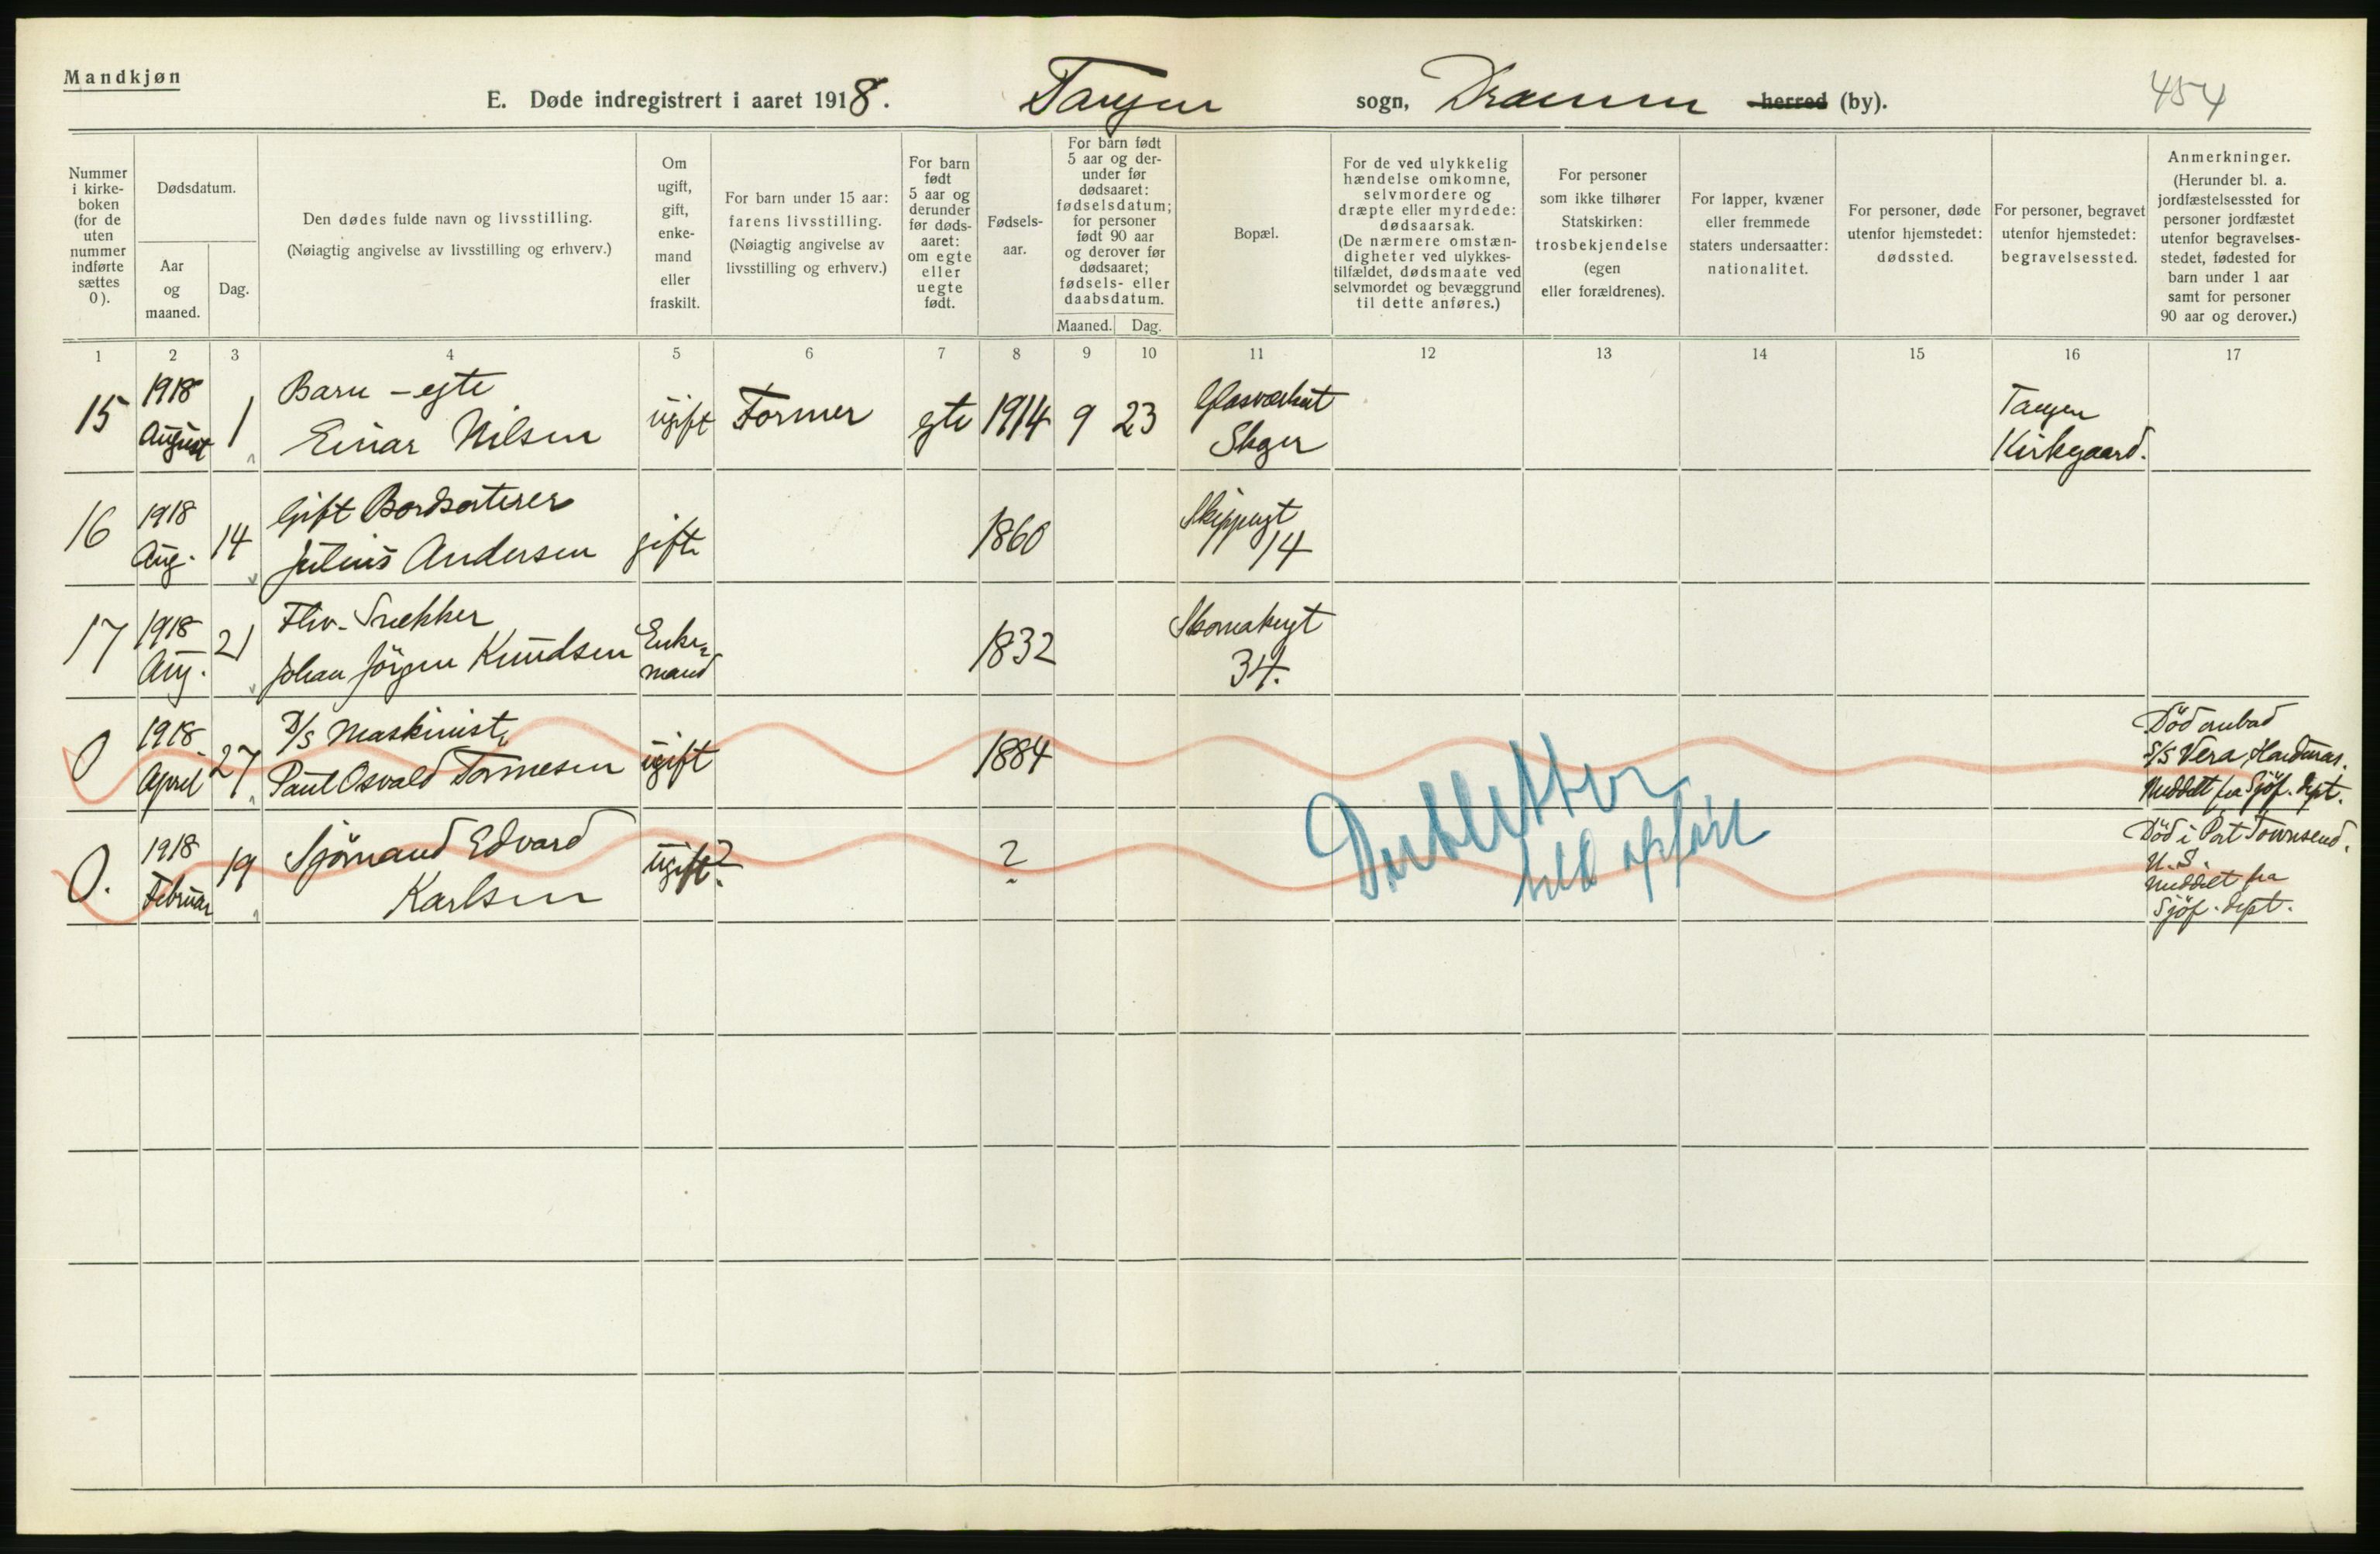 Mandkjøn
E. Døde indregistrert i aaret 1918. Tangen sogn, Drammen herred (by).
454
Nummer
i kirke-
boken
(for de
uten
nummer
indførte
sættes
0).
Dødsdatum.
Aar
og
maaned.
Dag.
Den dødes fulde navn og livsstilling.
(Nøiagtig angivelse av livsstilling og erhverv.)
Om
ugift,
gift,
enke-
mand
eller
fraskilt.
For barn under 15 aar:
farens livsstilling.
(Nøiagtig angivelse av
livsstilling og erhverv.)
For barn
født
5 aar og
derunder
før døds-
aaret:
om egte
eller
uegte
født.
Fødsels-
aar.
For barn født
5 aar og der-
under før
dødsaaret:
fødselsdatum;
for personer
født 90 aar
og derover før
dødsaaret;
fødsels- eller
daabsdatum.
Maaned.
Dag.
Bopæl.
For de ved ulykkelig
hændelse omkomne,
selvmordere og
dræpte eller myrdede:
dødsaarsak.
(De nærmere omstæn-
digheter ved ulykkes-
tilfældet, dødsmaate ved
selvmordet og bevæggrund
til dette anføres.)
For personer
som ikke tilhører
Statskirken:
trosbekjendelse
(egen
eller forældrenes).
For lapper, kvæner
eller fremmede
staters undersaatter:
nationalitet.
For personer, døde
utenfor hjemstedet:
dødssted.
For personer, begravet
utenfor hjemstedet:
begravelsessted.
Anmerkninger.
(Herunder bl. a.
jordfæstelsessted for
personer jordfæstet
utenfor begravelses-
stedet, fødested for
barn under 1 aar
samt for personer
90 aar og derover.)
1 2 3 4 5 6 7 8 9 10 11 12 13 14 15 16 17
15
1918
August
1
Barn - egte
Einar Nilsen
ugift
Former
egte
1914
9
23
Glasværket
Skger
Tangen
Kirkegaard.
16
1918
Aug.
14
Gift Bordsorterer
Julius Andersen
gift
1860
Skippergt
14
17
1918
Aug.
21
Fhv. Snekker
Johan Jörgen Knudsen
Enke-
mand
1832
Skomakergt
34.
0
1918
April
27
D/s Maskinist
Paul Osvald Tönnesen
ugift
1884
Död ombord
S/S Vera, Honduras.
Meddelt fra Sjöf. dept.
0.
1918
Februar
19
Sjömand Edvard
Karlsen
ugift?
?
Död i Port Townsend.
U.S.
Meddelt fra
Sjöf. dept.
Dubletter